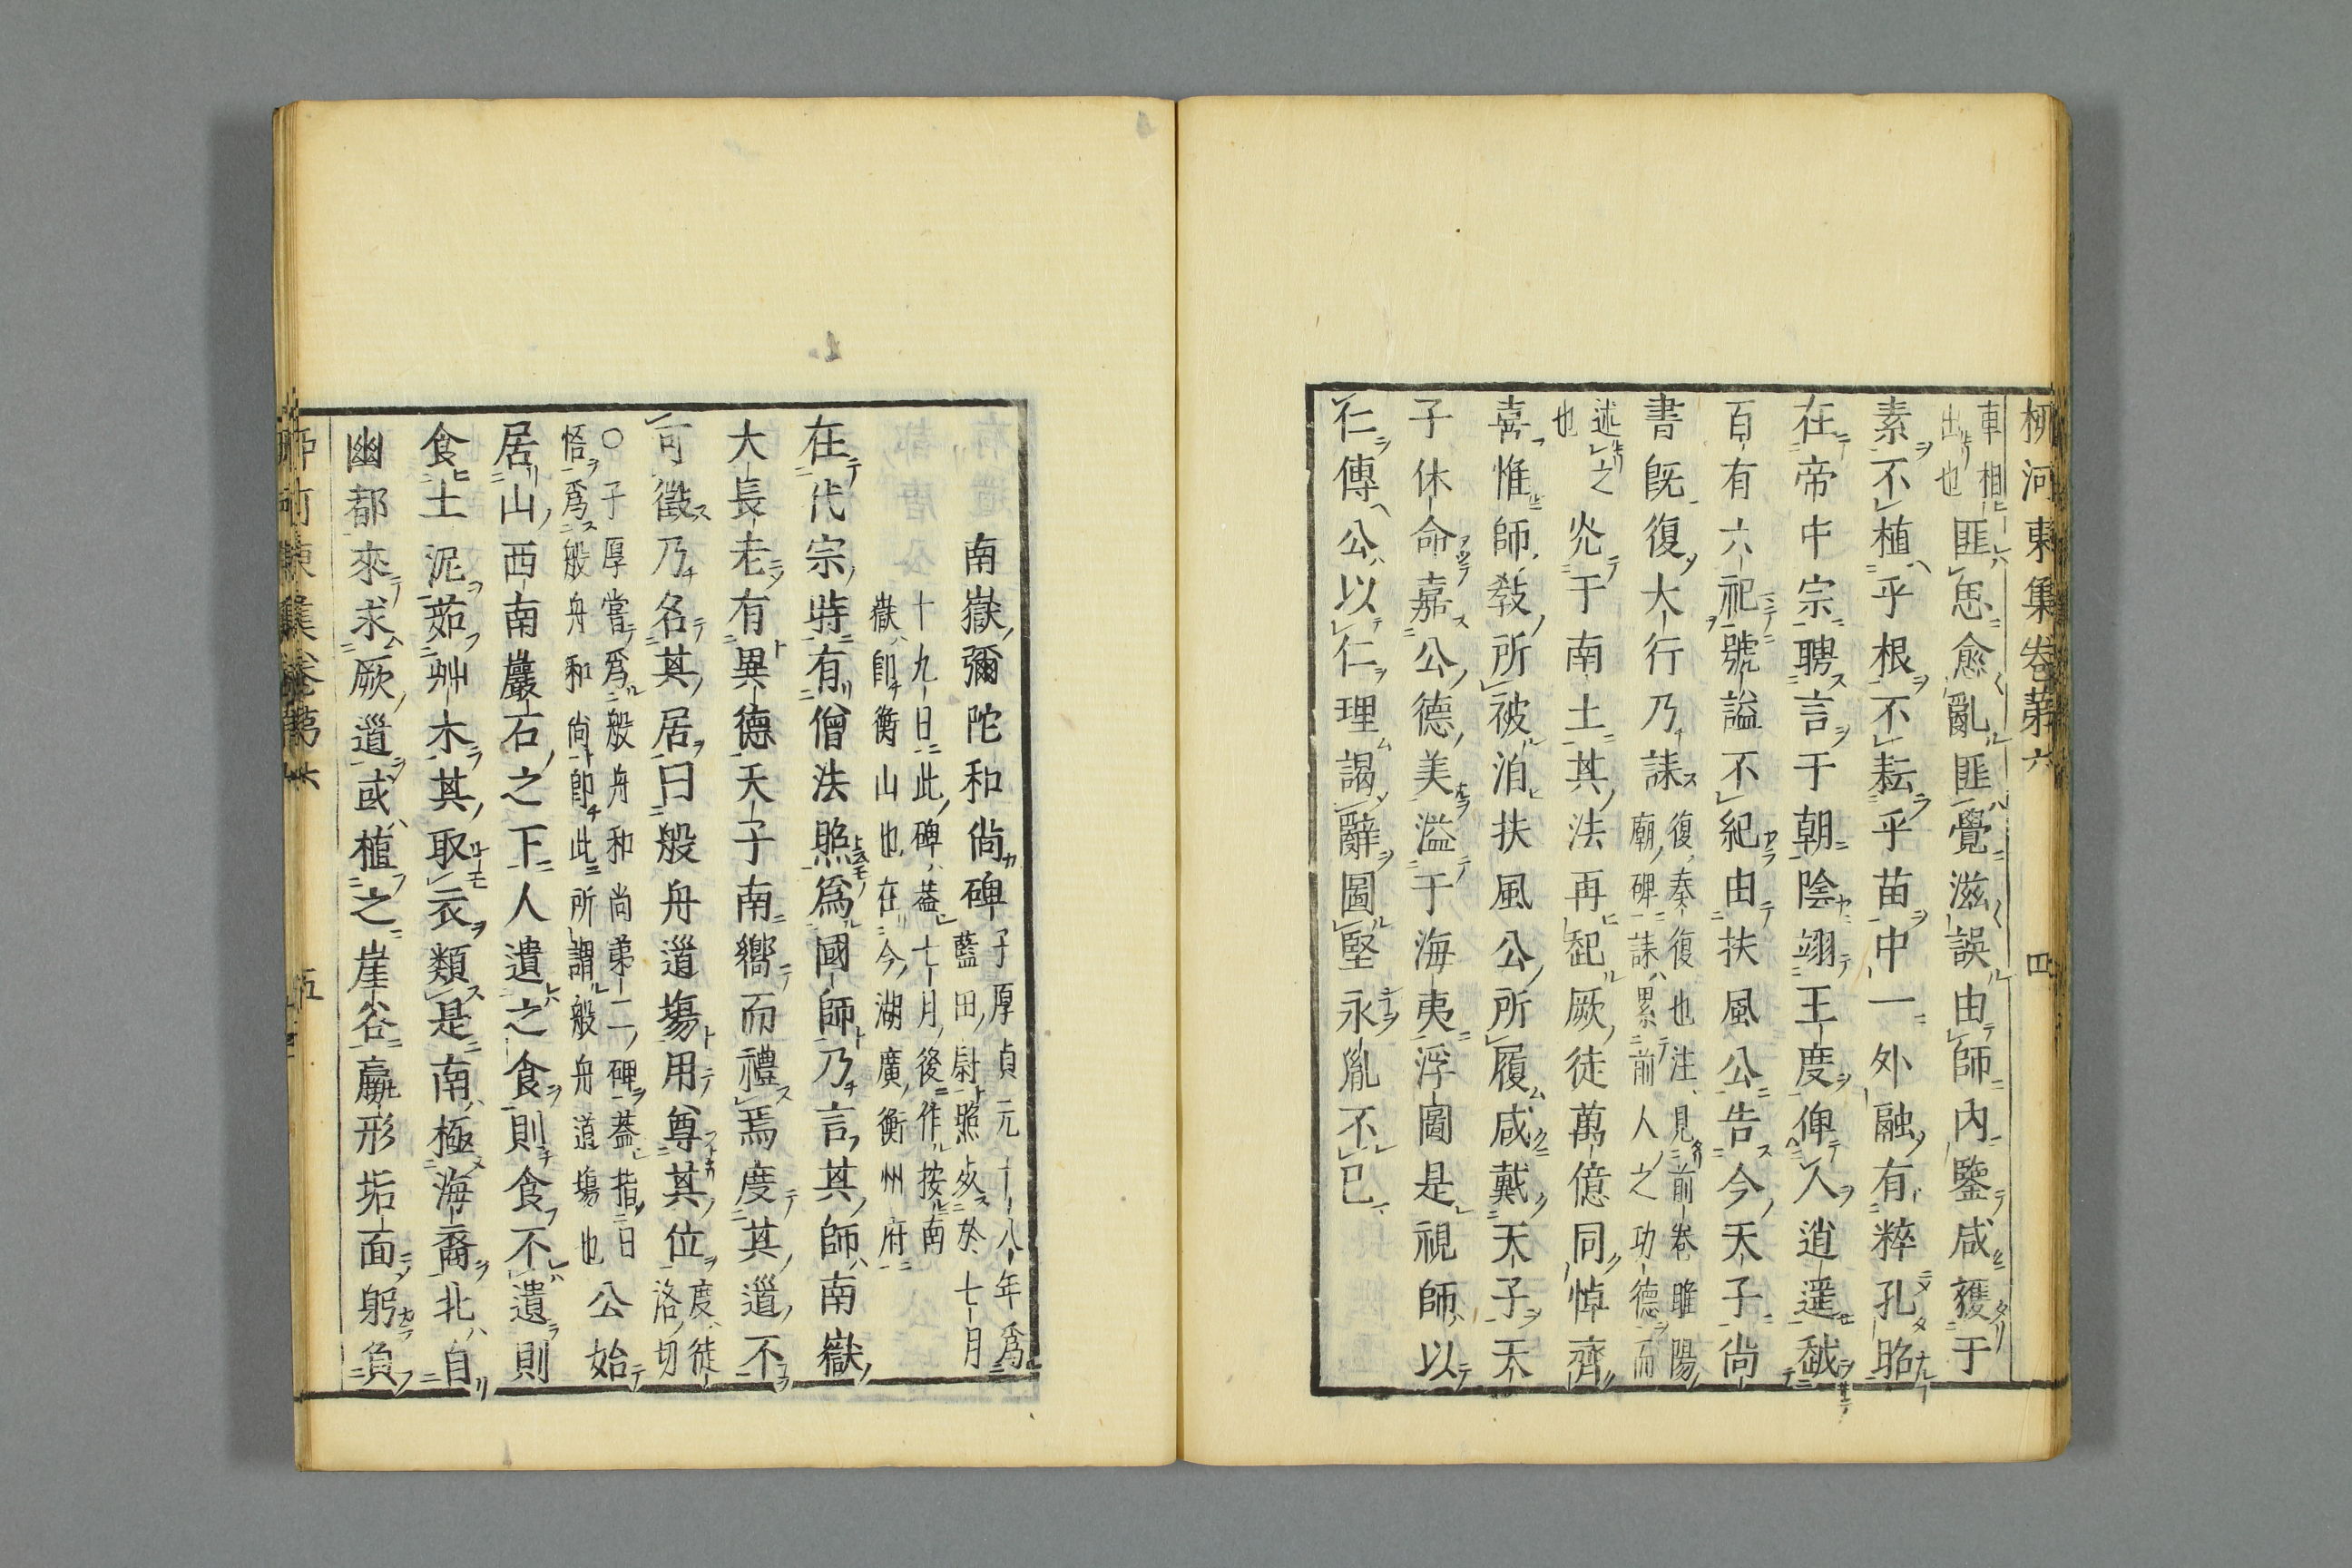 柳河東集卷第六　四
車相出也匪怠愈亂匪覺滋誤由師内鑒咸獲于
素不植乎根不耘乎苗中一外融有粹孔昭
在帝中宗聘言于朝陰翊王度俾人逍遥越
百有六祀號謚不紀由扶風公告今天子尚
書既復大行乃誄復奏復也注見前卷睢陽廟碑誄累前人之功德而
述之也炎于南土其法再起厥徒萬億同悼齊
喜惟師教所被洎扶風公所履咸戴天子天
子休命嘉公德美溢于海夷浮圖是視師以
仁傳公以仁理謁辭圖堅永胤不已
南嶽彌陀和尚碑子厚貞元十八年爲藍田尉照𡚁於七月
十九日此碑葢七月後作按南嶽即衡山也在今湖廣衡州府
在代宗時有僧法照爲國師乃言其師南嶽
大長老有異德天子南嚮而禮焉度其道不
可徵乃名其居曰般舟道塲用尊其位度徒洛切
○子厚嘗爲般舟和尚弟二碑葢指日悟爲般舟和尚即此所謂般舟道塲也公始
居山西南巖石之下人遺之食則食不遺則
食土泥茹艸木其取衣類是南極海裔北自
幽都來求厥道或植之崖谷羸形垢面躬負
柳河東集卷第六　五